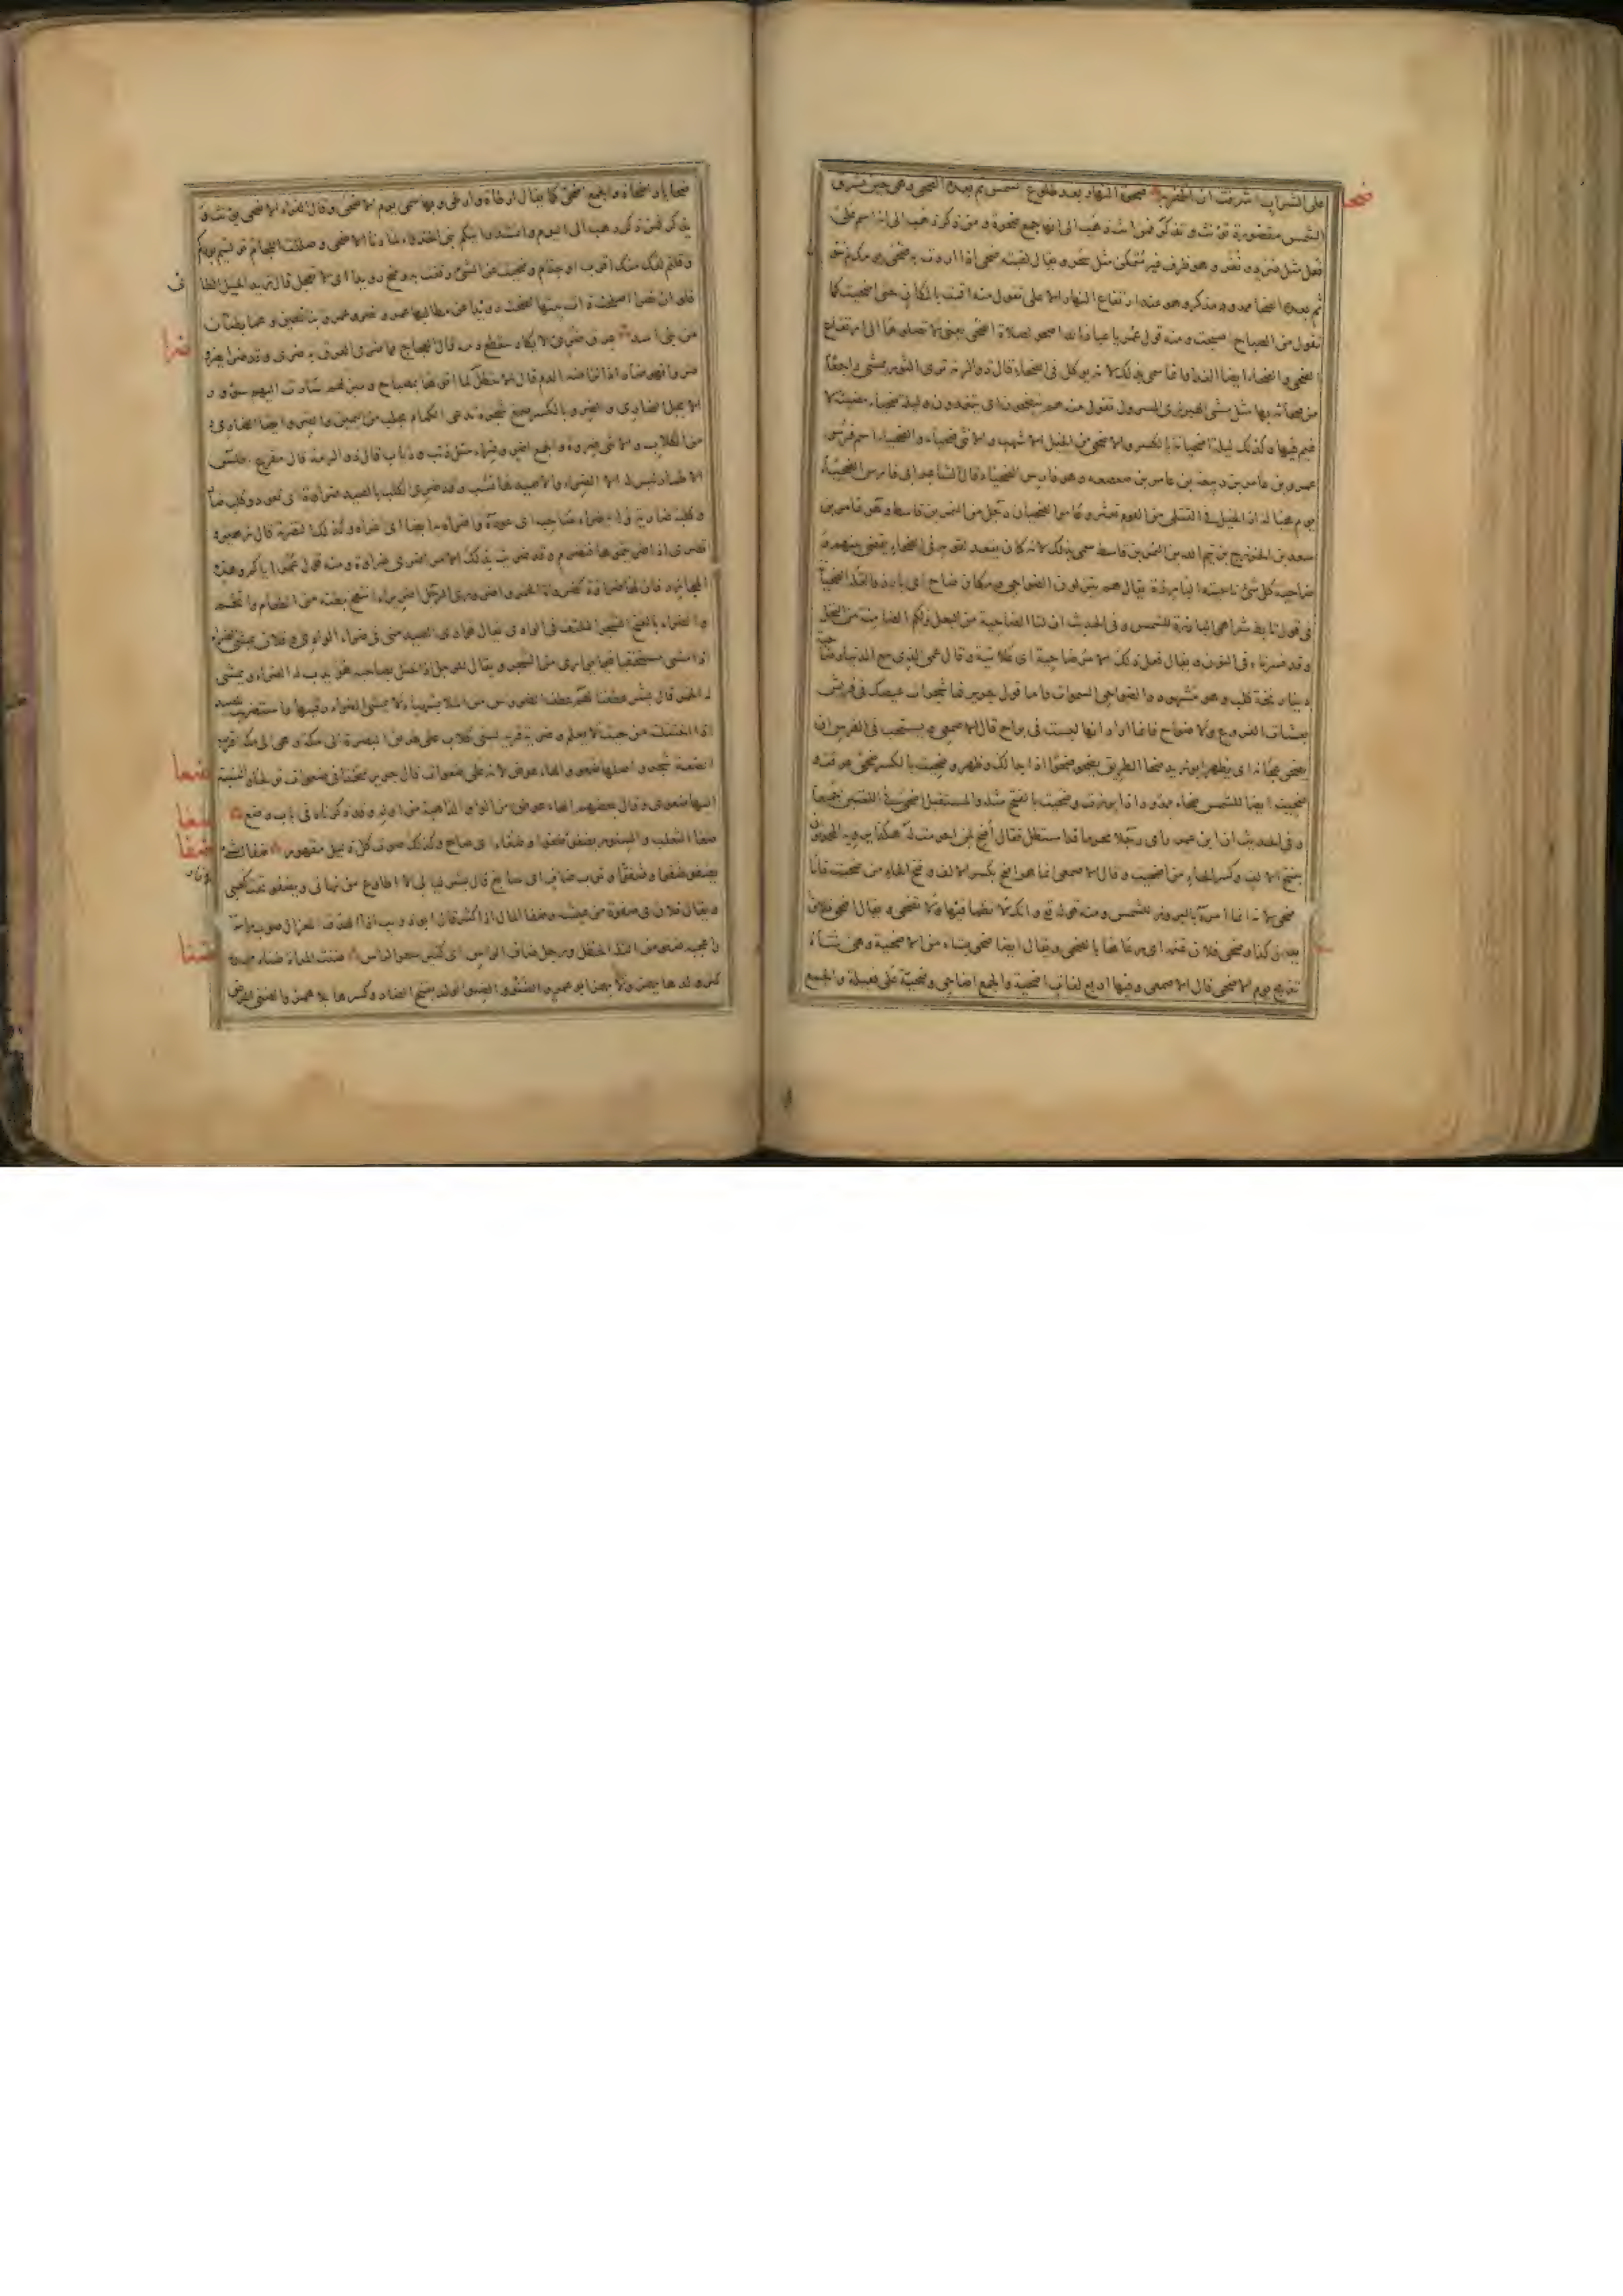 على الشراب اشرفت ان اظفر به ضحوة النهار بعد طلوع الشمس ثم بعده الضحى وهى حين تشرق
ضحا
الشمس مقصورة تؤنث وتذكر فمن انث ذهب الى انها جمع ضحوة ومن ذكر ذهب الى انه اسم على
فعل مثل صرد ونغر وهو ظرف غير متمكن مثل سحر ويقال لقيته ضحى اذا اردت به ضحى يومك لم تنو
ثم بعده الضحاء ممدود مذكر وهو عند ارتفاع النهار الاعلى تقول منه اقمت بالمكان حتى اضحيت كما
تقول من الصباح اصبحت ومنه قول عمر يا عباد الله اضحوا بصلاة الضحى يعنى لا تصلوها الا الى ارتفاع
الضحى والضحاء ايضا الغداء وانما سمى بذلك لانه يوكل فى الضحاء قال ذو الرمة ترى الثور يمشى راجعا
من ضحائه بها مثل مشى الهبرزى المسرول تقول منه هم يتضحون اى يتغدون وليلة ضحياء مضيئة لا
غيم فيها وكذلك ليلة اضحيانة بالكسر والاضحى من الخيل الاشهب والانثى ضحياء والضحياء اسم فرس
عمرو بن عامر بن ربيعة بن عامر بن صعصعة وهو فارس الضحياء قال الشاعر ابى فارس الضحياء
يوم هبالة اذ الخيل فى القتلى من القوم تعثر وعامر الضحيان رجل من النمر بن قاسط وهو عامر بن
سعد بن الخزرج بن تيم الله بن النمر بن قاسط سمى بذلك لانه كان يقعد لقومه فى الضحاء يقضى بينهم و
ضاحية كل شئ ناحيته البارزة يقال هم ينزلون الضواحى ومكان ضاح اى بارز والقلة الضحيانة
فى قول تابط شرا هى البارزة للشمس وفى الحديث ان لنا الضاحية من البعل ولكم الضامنة من النخل
وقد فسرناه فى النون ويقال فعل ذلك الامر ضاحية اى علانية وقال عمى الذى منع الدينار ضاحية
دينار نخة كلب وهو مشهود والضواحى السموات واما قول جرير فما شجرات عيصك فى قريش
بعشات الفروع ولا ضواح فانما اراد انها ليست فى نواح قال الاصمعى ويستحب فى الفرس ان
يضحى عجانه اى يظهر ابو زيد ضحا الطريق يضحو ضحوا اذا بدا لك وظهر وضحيت بالكسر ضحى عرقت و
ضحيت ايضا للشمس ضحاء ممدود اذا برزت وضحيت بالفتح مثله والمستقبل اضحى فى اللغتين جميعا
وفى الحديث ان ابن عمر راى رجلا محرما قد استظل فقال اضح لمن احرمت له هكذا يرويه المحدثون
بفتح الالف وكسر الحاء من اضحيت وقال الاصمعى انما هو اضح بكسر الالف وفتح الحاء من ضحيت
ضحى لانه انما امره بالبروز للشمس ومنه قوله تع وانك لا تظما فيها ولا تضحى ويقال اضحى فلان
يفعل كذا وضحى فلان غنمه اى رعاها بالضحى ويقال ايضا ضحى بشاة من الاضحية وهى شاة
تذبح يوم الاضحى قال الاصمعى وفيها اربع لغات اضحية والجمع اضاحى وضحية على فعيلة والجمع
ضحايا واضحاة والجمع اضحى كما يقال ارطاة وارطى وبها سمى يوم الاضحى وقال الفراء الاضحى يؤنث و
يذكر فمن ذكر ذهب الى اليوم وانشد رايتكم بنى الخذواء لما دنا الاضحى وصللت اللحام توليتم بودكم
وقلتم لعك منك اقرب او جذام وضحيت عن الشئ رفقت به وضح رويدا اى لا تعجل قال زيد الخيل الطائى
فلو ان نصرا اصلحت ذات بينها لضحت رويدا عن مطالبها عمرو ونصر وعمرو ابنا قعين وهما بطنان
من بنى اسد عرق ضرى لا يكاد ينقطع دمه قال العجاج مما ضرى العرق به الضرى وقد ضرا يضرو
ضرا
ضروا فهو ضار اذا نزا منه الدم قال الاخطل لما اتوها بمصباح ومبزلهم سارت اليهم سؤور
الابجل الضارى والضرو بالكسر صمغ شجرة تدعى الكمكام يجلب من اليمن والضرو ايضا الضارى
من الكلاب والانثى ضروة والجمع اضر وضراء مثل ذئب واذؤب وذئاب قال ذو الرمة مقزع اطلس
الاطمار ليس له الا الضراء والا صيدها نشب وقد ضرى الكلب بالصيد ضراوة اى تعود وكلب ضار
وكلبة ضارية واضراه صاحبه اى عوده واضراه به ايضا اى اغراه وكذلك التضرية قال زهير
وتضر اذا ضريتموها فتضرم وقد ضريت بذلك الامر اضرى ضراوة ومنه قول عمر اياكم وهذه
المجازر فان لها ضراوة كضراوة الخمر
والضراء بالفتح الشجر الملتف فى الوادى يقال توارى الصيد منى فى ضراء الوادى وفلان يمشى الضراء
اذا مشى مستخفيا فيما يوارى من الشجر ويقال للرجل اذا ختل صاحبه هو يدب له الضراء ويمشى
له الخمر قال بشر عطفنا لهم عطف الضروس من الملا بشهباء لا يمشى الضراء رقيبها واستضريت للصيد
اذا ختلته من حيث لا يعلم وضرية قرية لبنى كلاب على طريق البصرة الى مكة وهى الى مكة اقرب
الضعة شجر واصلها ضعو والهاء عوض لانه يجمع على ضعوات قال جرير متخذا فى ضعوات تولجا والنسبة
ضعا
اليها ضعوى وقال بعضهم الهاء عوض من الواو الذاهبة من اوله وقد ذكرناه فى باب وضع
ضغا
ضغا الثعلب والسنور يضغو ضغوا وضغاء اى صاح وكذلك صوت كل ذليل مقهور ضفا الشئ
ضفا
يضفو ضفوا وثوب ضاف اى سابغ قال بشر ليالى لا اطاوع من نهانى ويضفو تحت كعبى
الازار
ويقال فلان فى ضفوة من عيشه وضفا المال اذا كثر قال ابو ذؤيب اذا الهدف المعزال صوب راسه
واعجبه ضفو من الثلة الخطل ورجل ضافى الراس اى كثير شعر الراس ضنت المراة ضناء ممدود
ضنا
كثر ولدها يهمز ولا يهمز ابو عمرو الضنو الولد بفتح الضاد وكسرها بلا همز والضنى المرض